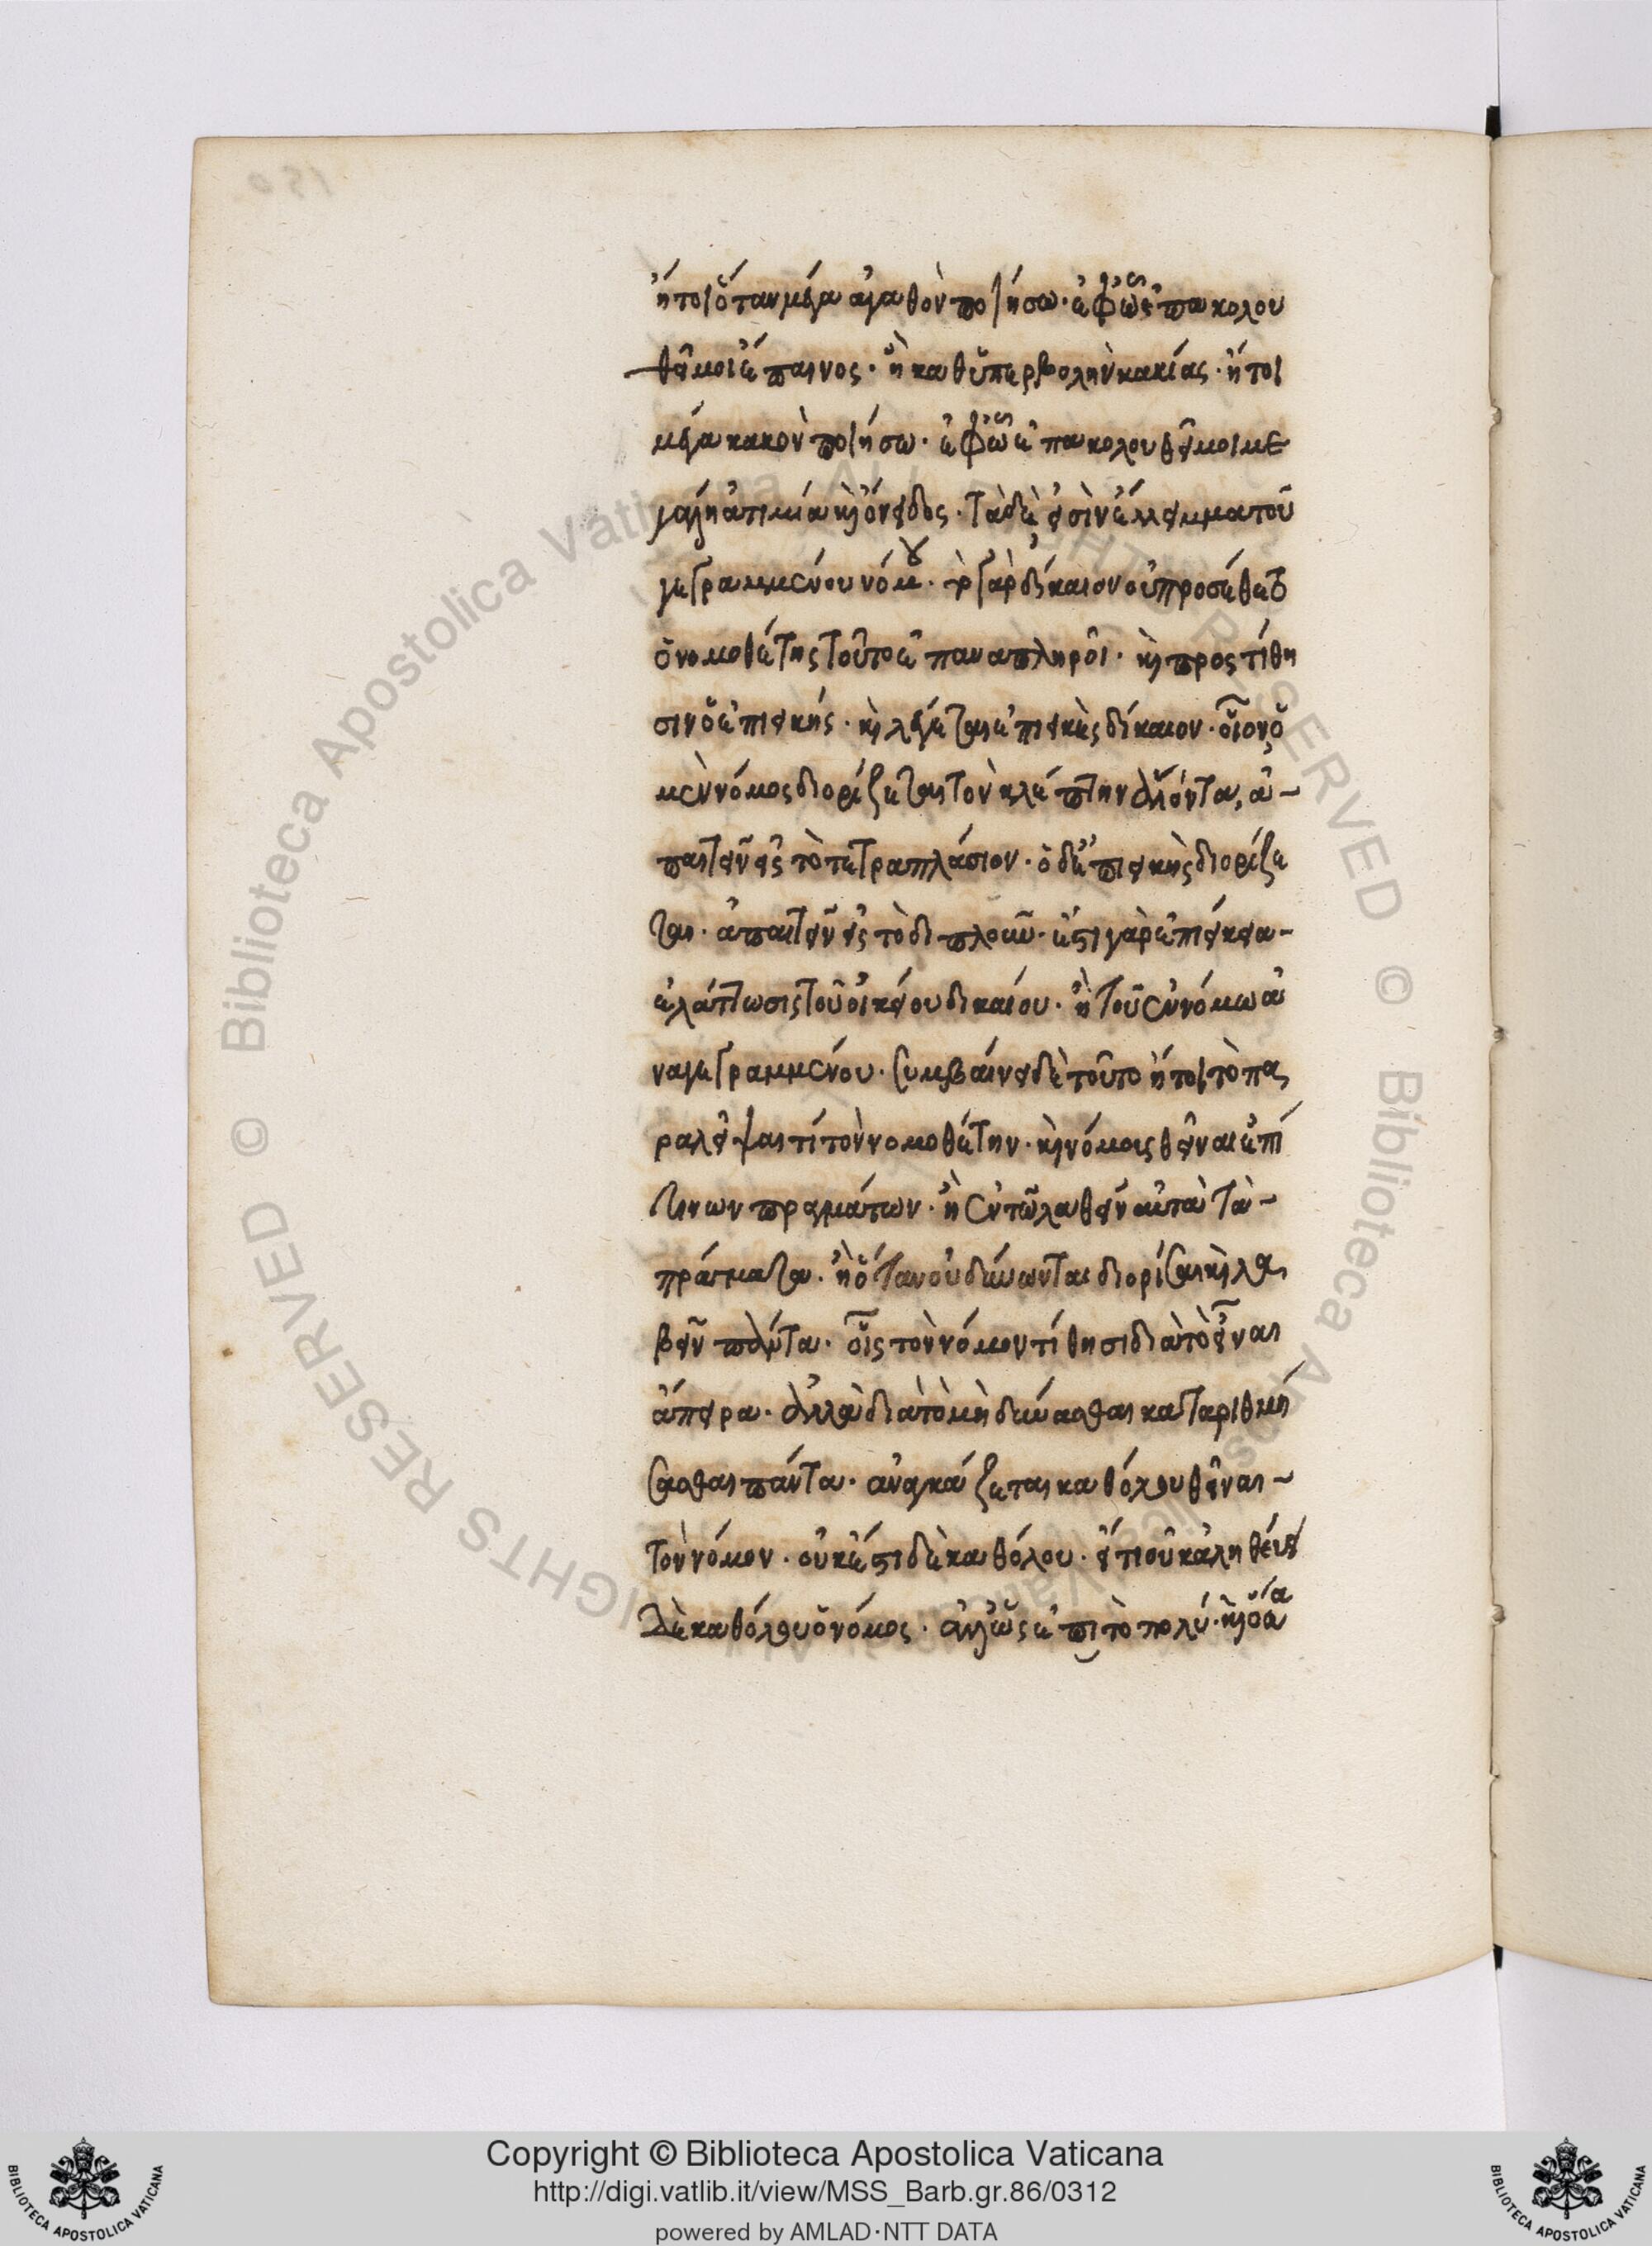 ἤτοι ὅταν μέγα ἀγαθὸν ποιήσω · ἐφ' ᾧ ἐπακολου
θεῖ μοι ἔπαινος · ἢ καθ' ὑπερβολὴν κακίας · ἤτοι
μέγα κακὸν ποιήσω · ἐφ' ᾧ ἐπακολουθεῖ μοι με
γάλη ἀτιμία καὶ ὄνειδος · τὰ δὲ εἰσὶν ἔλλειμμα τοῦ
γεγραμμένου νόμου · γὰρ δίκαιον οὐ προσέθετο
ὁ νομοθέτης τοῦτο ἐπαναπληροῖ · καὶ προστίθη
σιν ὁ ἐπιεικής · καὶ λέγεται ἐπιεικὲς δίκαιον · οἷον ὁ
μὲν νόμος διορίζεται τὸν κλέπτην ἁλόντα, ἀ-
παιτεῖν εἰς τὸ τετραπλάσιον · ὁ δ' ἐπιεικὴς διορίζε
ται · ἀπαιτεῖν εἰς τὸ διπλοῦν · ἔστι γὰρ ἐπιείκεια-
ἐλάττωσις τοῦ οἰκείου δικαίου · ἢ τοῦ ἐν νόμω ἀ
ναγεγραμμένου · συμβαίνει δὲ τοῦτο ἤτοι τὸ πα
ραλεῖψαι τί τὸν νομοθέτην · καὶ νόμοις θεῖναι ἐπί
τινων πραγμάτων · ἢ ἐν τῶ λαθεῖν αὐτὰ τὰ-
πράγματα · ἢ ὅταν οὐ δύνωνται διορίσαι καὶ λα
βεῖν πάντα · οἷς τὸν νόμον τίθησι διὰ τὸ εἶναι
ἄπειρα · ἀλλὰ διὰ τὸ μὴ δύνασθαι καταριθμή
σασθαι πάντα · ἀναγκάζεται καθόλου θεῖναι-
τὸν νόμον · οὐκ ἔστι δὲ καθόλου · εἴτι οὐκ ἀληθεύει
δὲ καθόλου ὁ νόμος · ἀλλ' ὡς ἐπὶ τὸ πολύ · καὶ ὅσα
Copyright © Biblioteca Apostolica Vaticana
http://digi.vatlib.it/view/MSS_Barb.gr.86/0312
powered by AMLAD·NTT DATA